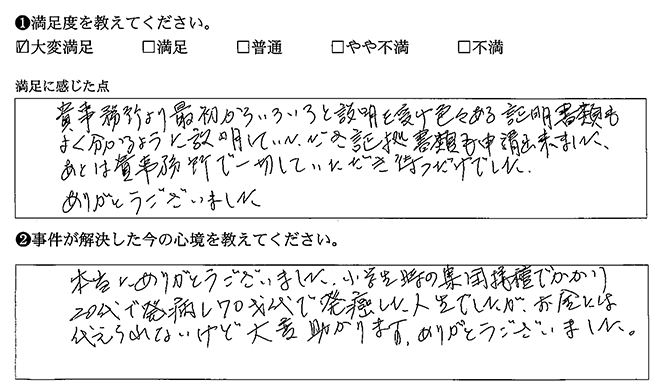 ❶満足度を教えてください。
☑大変満足 □満足 □普通 □やや不満 □不満
満足に感じた点
貴事務所より最初からいろいろと説明を受け色々ある証明書類も
よく分かるように説明していただき証拠書類も申請出来ました、
あとは貴事務所で一切していただき待つだけでした.
ありがとうございました
❷事件が解決した今の心境を教えてください。
本当にありがとうございました、小学生時の集団接種でかかり
20代で発病し70才代で発癌した人生でしたが、お金には
代えられないけど大変助かります、ありがとうございました。